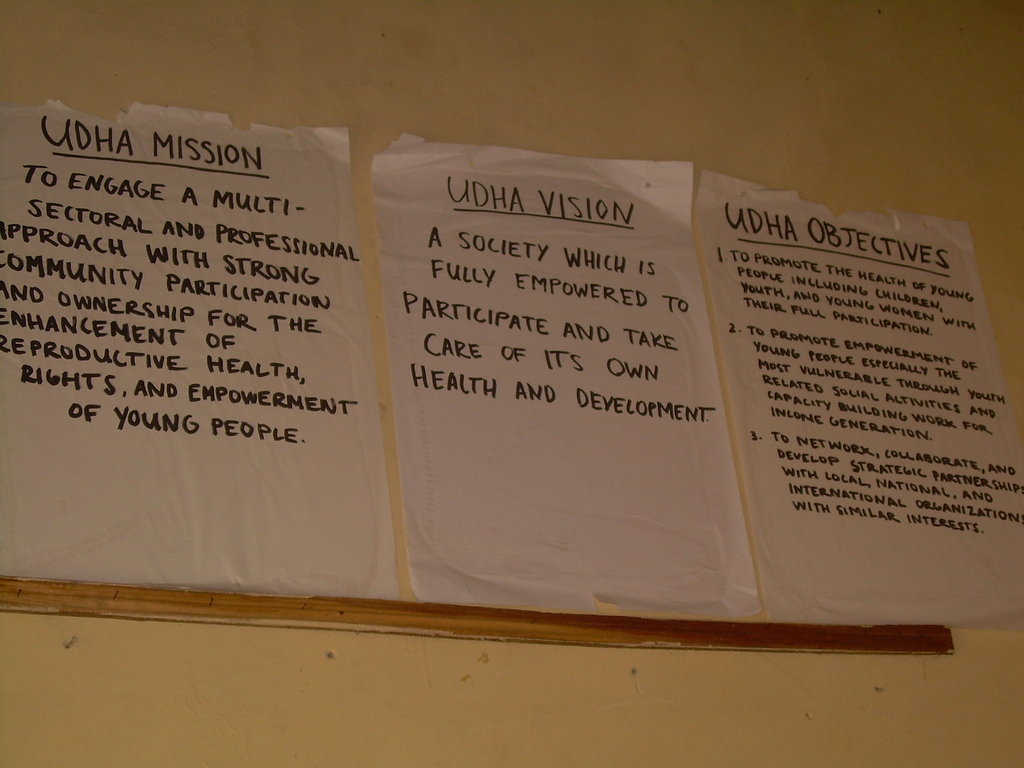 UDHA MISSION
TO ENGAGE A MULTI-
SECTORAL AND PROFESSIONAL
APPROACH WITH STRONG
COMMUNITY PARTICIPATION
AND OWNERSHIP FOR THE
ENHANCEMENT OF
REPRODUCTIVE HEALTH,
RIGHTS, AND EMPOWERMENT
OF YOUNG PEOPLE.
UDHA VISION
A SOCIETY WHICH IS
FULLY EMPOWERED TO
PARTICIPATE AND TAKE
CARE OF ITS OWN
HEALTH AND DEVELOPMENT.
UDHA OBJECTIVES
1. TO PROMOTE THE HEALTH OF YOUNG
PEOPLE INCLUDING CHILDREN,
YOUTH, AND YOUNG WOMEN WITH
THEIR FULL PARTICIPATION.
2. TO PROMOTE EMPOWERMENT OF
YOUNG PEOPLE ESPECIALLY THE
MOST VULNERABLE THROUGH YOUTH
RELATED SOCIAL ACTIVITIES AND
CAPACITY BUILDING WORK FOR
INCOME GENERATION.
3. TO NETWORK, COLLABORATE, AND
DEVELOP STRATEGIC PARTNERSHIPS
WITH LOCAL, NATIONAL, AND
INTERNATIONAL ORGANIZATIONS
WITH SIMILAR INTERESTS.